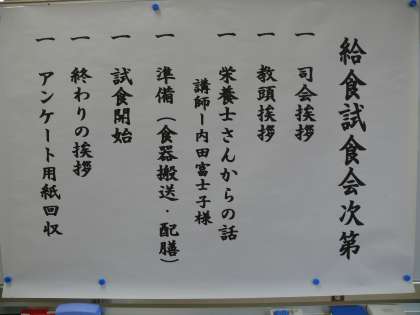 給食試食会次第
一 司会挨拶
一 教頭挨拶
一 栄養士さんからの話
講師ー内田富士子様
一 準備（食器搬送・配膳）
一 試食開始
一 終わりの挨拶
一 アンケート用紙回収